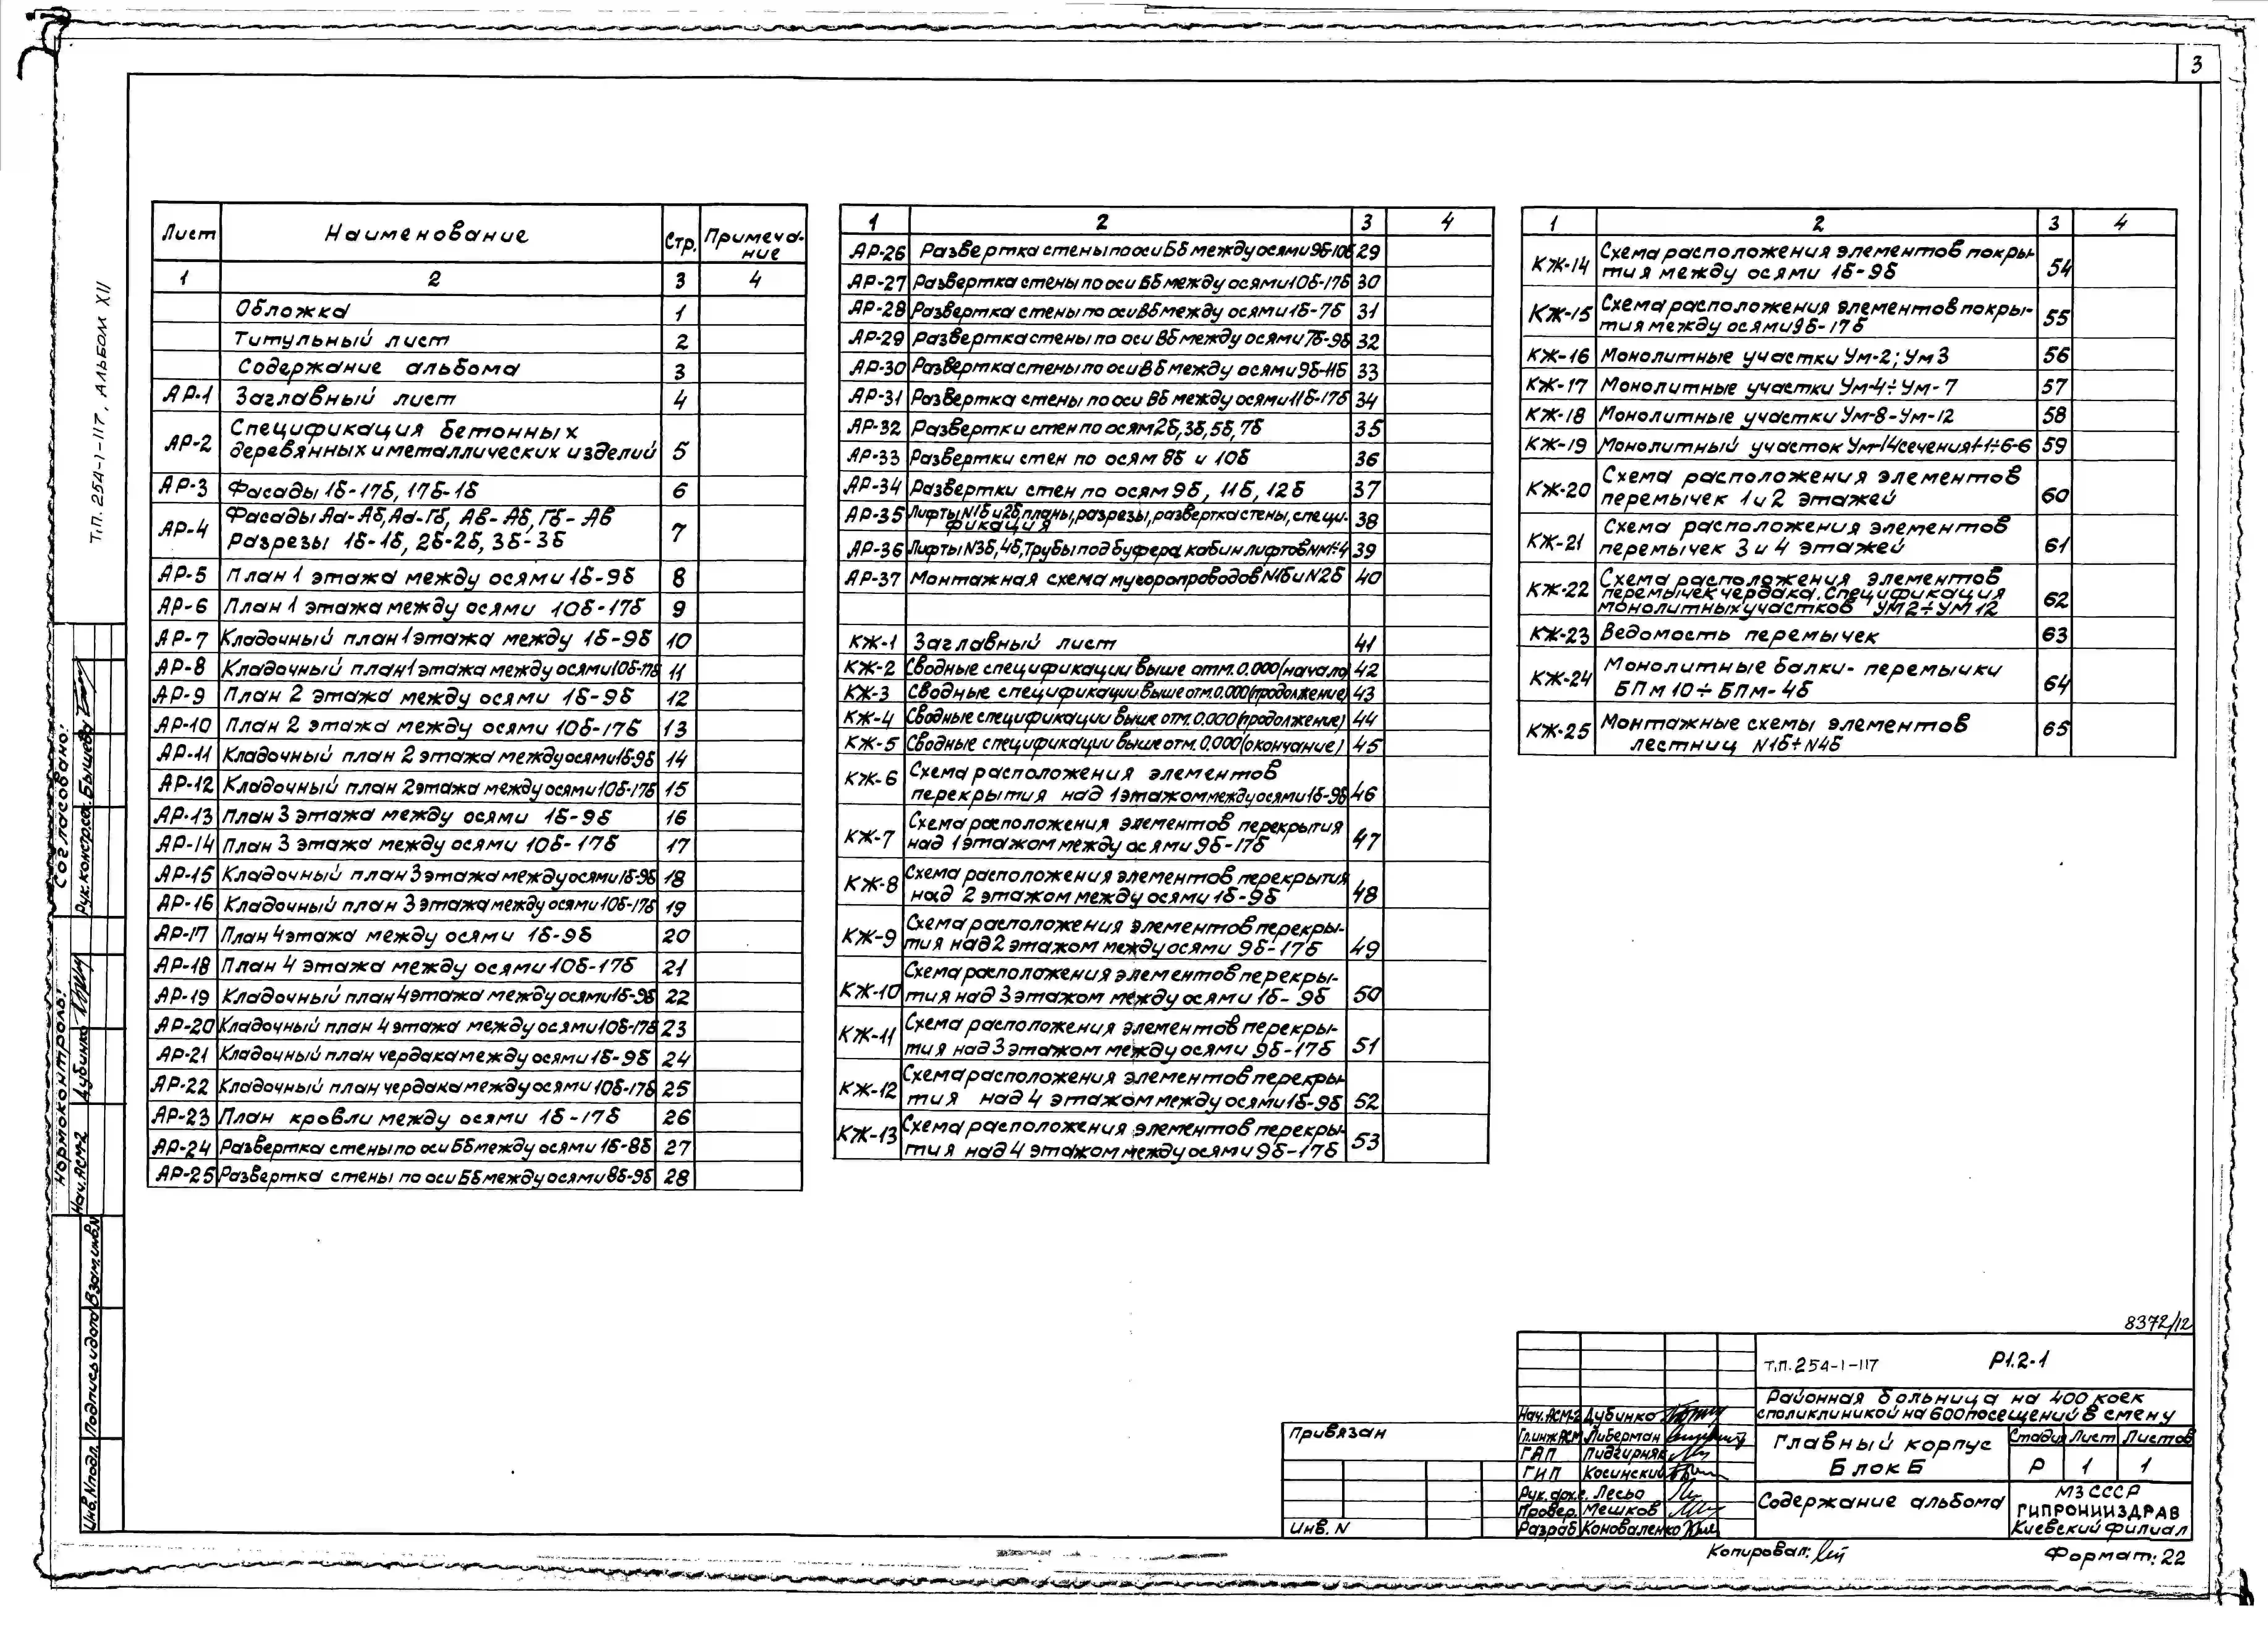 3
Т.П. 254-1-117, Альбом XII
Лист Наименование Стр. Примеча-
ние
1 2 3 4
Обложка 1
Титульный лист 2
Содержание альбома 3
АР-1 Заглавный лист 4
АР-2 Спецификация бетонных
деревянных и металлических изделий 5
АР-3 Фасады 1б-17б, 17б-1б 6
АР-4 Фасады Аа-Аб, Аа-Гб, Ав-Аб, Гб-Ав
Разрезы 1б-1б, 2б-2б, 3б-3б 7
АР-5 План 1 этажа между осями 1б-9б 8
АР-6 План 1 этажа между осями 10б-17б 9
АР-7 Кладочный план 1 этажа между 1б-9б 10
АР-8 Кладочный план 1 этажа между осями 10б-17б 11
АР-9 План 2 этажа между осями 1б-9б 12
АР-10 План 2 этажа между осями 10б-17б 13
АР-11 Кладочный план 2 этажа между осями 1б-9б 14
АР-12 Кладочный план 2 этажа между осями 10б-17б 15
АР-13 План 3 этажа между осями 1б-9б 16
АР-14 План 3 этажа между осями 10б-17б 17
АР-15 Кладочный план 3 этажа между осями 1б-9б 18
АР-16 Кладочный план 3 этажа между осями 10б-17б 19
АР-17 План 4 этажа между осями 1б-9б 20
АР-18 План 4 этажа между осями 10б-17б 21
АР-19 Кладочный план 4 этажа между осями 1б-9б 22
АР-20 Кладочный план 4 этажа между осями 10б-17б 23
АР-21 Кладочный план чердака между осями 1б-9б 24
АР-22 Кладочный план чердака между осями 10б-17б 25
АР-23 План кровли между осями 1б-17б 26
АР-24 Развертка стены по оси Бб между осями 1б-8б 27
АР-25 Развертка стены по оси Бб между осями 8б-9б 28
1 2 3 4
АР-26 Развертка стены по оси Бб между осями 9б-10б 29
АР-27 Развертка стены по оси Бб между осями 10б-17б 30
АР-28 Развертка стены по оси Вб между осями 1б-7б 31
АР-29 Развертка стены по оси Вб между осями 7б-9б 32
АР-30 Развертка стены по оси Вб между осями 9б-11б 33
АР-31 Развертка стены по оси Вб между осями 11б-17б 34
АР-32 Развертки стен по осям 2б, 3б, 5б, 7б 35
АР-33 Развертки стен по осям 8б и 10б 36
АР-34 Развертки стен по осям 9б, 11б, 12б 37
АР-35 Лифты N1б и 2б, планы, разрезы, развертка стены, специ-
фикация 38
АР-36 Лифты N3б, 4б, Трубы под буфера кабин лифтов NN1÷4 39
АР-37 Монтажная схема мусоропроводов N1б и N2б 40
КЖ-1 Заглавный лист 41
КЖ-2 Сводные спецификации выше отм. 0.000 (начало) 42
КЖ-3 Сводные спецификации выше отм. 0.000 (продолжение) 43
КЖ-4 Сводные спецификации выше отм. 0.000 (продолжение) 44
КЖ-5 Сводные спецификации выше отм. 0.000 (окончание) 45
КЖ-6 Схема расположения элементов
перекрытия над 1 этажом между осями 1б-9б 46
КЖ-7 Схема расположения элементов перекрытия
над 1 этажом между осями 9б-17б 47
КЖ-8 Схема расположения элементов перекрытия
над 2 этажом между осями 1б-9б 48
КЖ-9 Схема расположения элементов перекры-
тия над 2 этажом между осями 9б-17б 49
КЖ-10 Схема расположения элементов перекры-
тия над 3 этажом между осями 1б-9б 50
КЖ-11 Схема расположения элементов перекры-
тия над 3 этажом между осями 9б-17б 51
КЖ-12 Схема расположения элементов перекры-
тия над 4 этажом между осями 1б-9б 52
КЖ-13 Схема расположения элементов перекры-
тия над 4 этажом между осями 9б-17б 53
1 2 3 4
КЖ-14 Схема расположения элементов покры-
тия между осями 1б-9б 54
КЖ-15 Схема расположения элементов покры-
тия между осями 9б-17б 55
КЖ-16 Монолитные участки Ум-2; Ум3 56
КЖ-17 Монолитные участки Ум-4÷Ум-7 57
КЖ-18 Монолитные участки Ум-8-Ум-12 58
КЖ-19 Монолитный участок Ум-14 сечения 1-1÷6-6 59
КЖ-20 Схема расположения элементов
перемычек 1 и 2 этажей 60
КЖ-21 Схема расположения элементов
перемычек 3 и 4 этажей 61
КЖ-22 Схема расположения элементов
перемычек чердака. Спецификация
монолитных участков УМ2÷УМ12 62
КЖ-23 Ведомость перемычек 63
КЖ-24 Монолитные балки-перемычки
БПм10÷БПм-4б 64
КЖ-25 Монтажные схемы элементов
лестниц N1б÷N4б 65
Согласовано:
Рук.констр.сек. Бышева
Нормоконтроль:
Нач.АСМ-2 Дубинко
Инв.Nподл. Подпись и дата Взам.инв.N
8372/12
Т.П. 254-1-117 Р1.2-1
Районная больница на 400 коек
с поликлиникой на 600 посещений в смену
Нач.АСМ-2 Дубинко
Гл.инж.АСМ Либерман
ГАП Пидгирняк
ГИП Косинский
Рук.арх.с. Лесьо
Провер. Мешков
Разраб Коноваленко
Главный корпус
Блок Б
Стадия Лист Листов
Р 1 1
Содержание альбома
МЗ СССР
ГИПРОНИИЗДРАВ
Киевский филиал
Привязан
Инв. N
Копировал:
Формат: 22